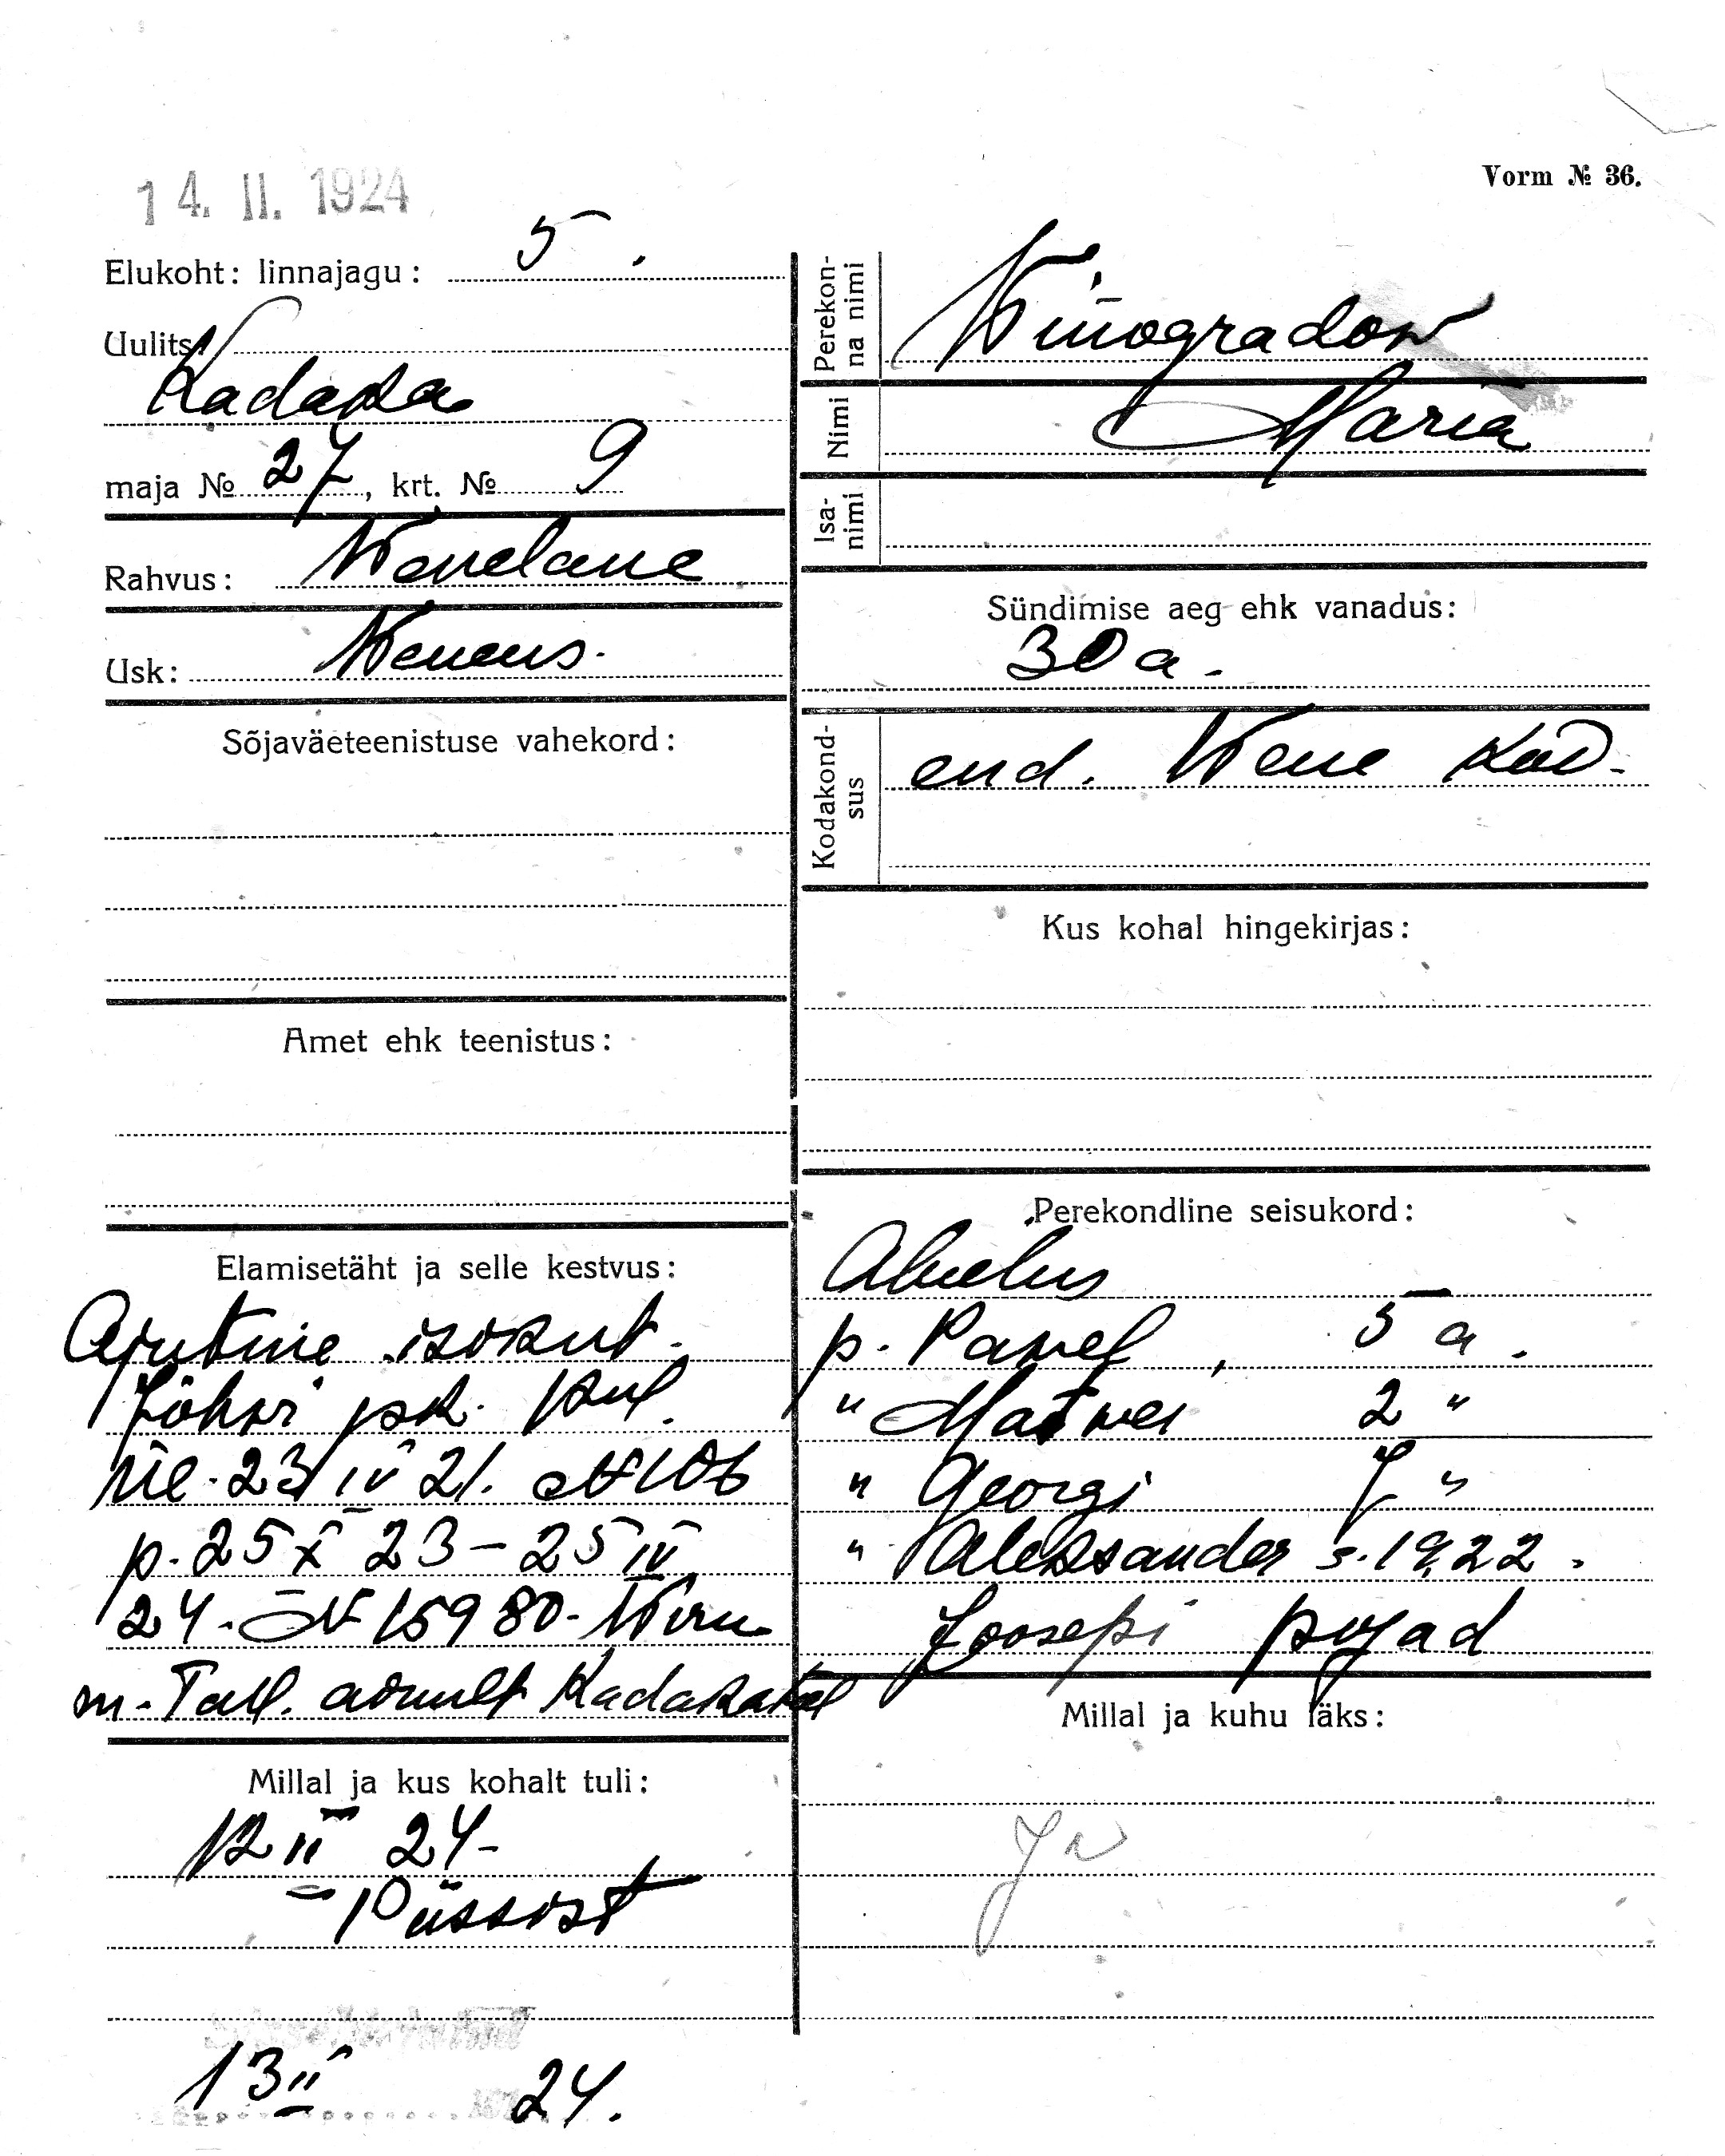 14. II. 1924
Vorm № 36.
Elukoht: linnajagu: 5.
Uulits:
Kadaka
maja № 27, krt. № 9
Rahvus: Wenelane
Usk: Weneus.
Sõjaväeteenistuse vahekord:
Amet ehk teenistus:
Elamisetäht ja selle kestvus:
Ajutine isikut.
Jõhwi jsk. kül.
ül. 23 IV 21. № 106
p. 25 X 23 – 25 IV
24. № 15980. Wiru
m. Tall. Kadakatel
Millal ja kus kohalt tuli:
12 II 24 –
Püssist
13 II 24.
Perekonna nimi Winogradow
Nimi Maria
Isanimi
Sündimise aeg ehk vanadus:
30 a.
Kodakondsus end. Wene kod.
Kus kohal hingekirjas:
Perekondline seisukord:
Abielus
p. Pawel, 5 a.
" Matwei 2 "
" Georgi 7 "
" Aleksander s. 1922.
Joosepi pojad
Millal ja kuhu läks: